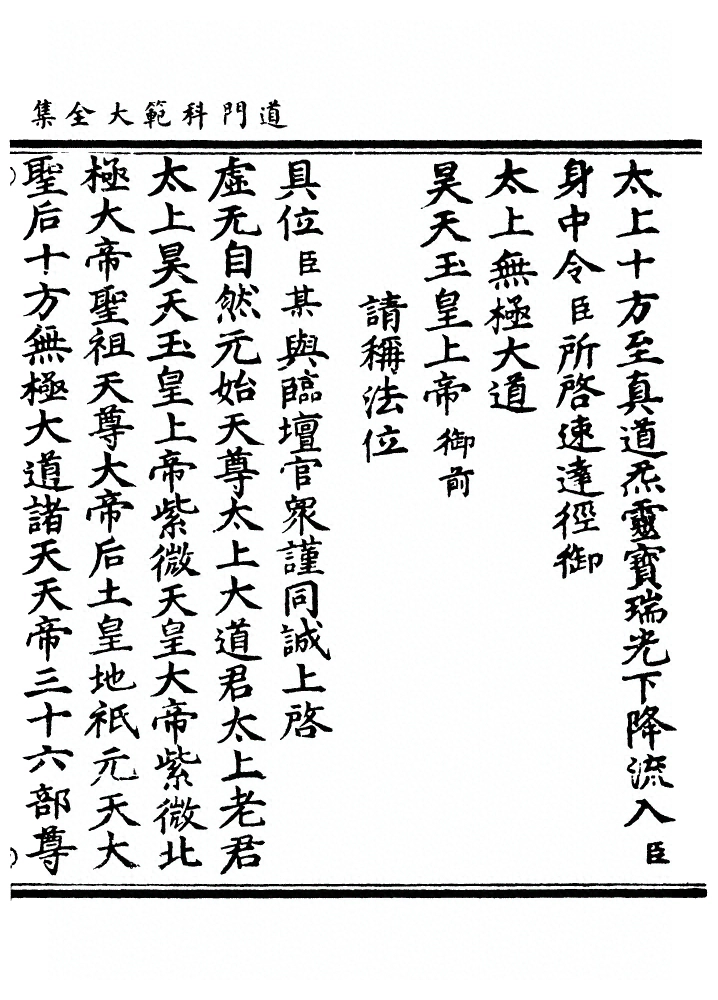 道門科範大全集
太上十方至真道炁靈寶瑞光下降流入臣
身中令臣所啓速達徑御
太上無極大道
昊天玉皇上帝御前
請稱法位
具位臣某與臨壇官衆謹同誠上啓
虛无自然元始天尊太上大道君太上老君
太上昊天玉皇上帝紫微天皇大帝紫微北
極大帝聖祖天尊大帝后土皇地祇元天大
聖后十方無極大道諸天天帝三十六部尊